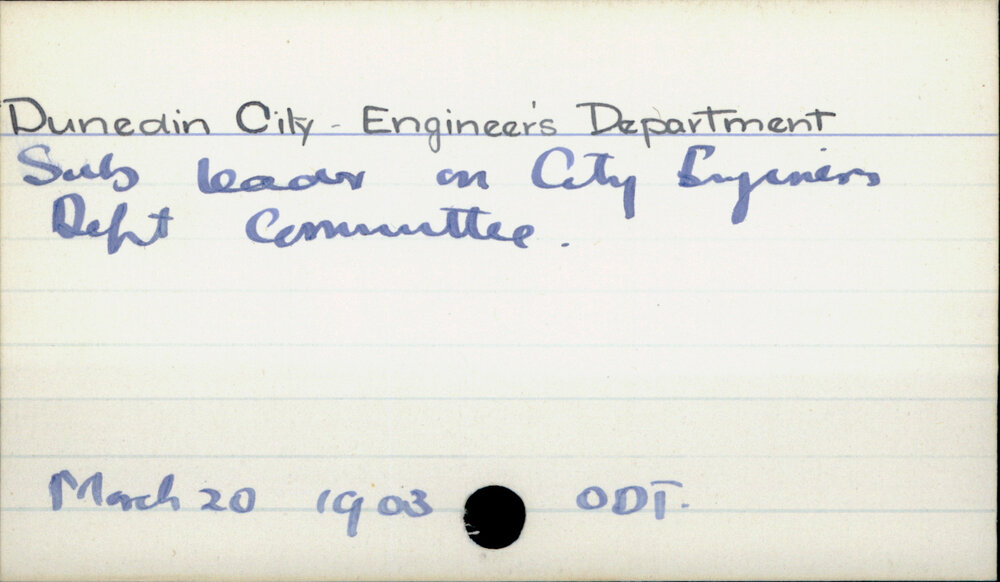 Dunedin City - Engineer's Department
Sub leader on City Engineers
Dept Committee.
March 20 1903 ODT.